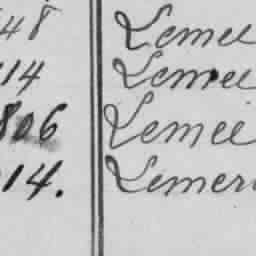 48 Lemee
14 Lemee
806 Lemée
14. Lemer